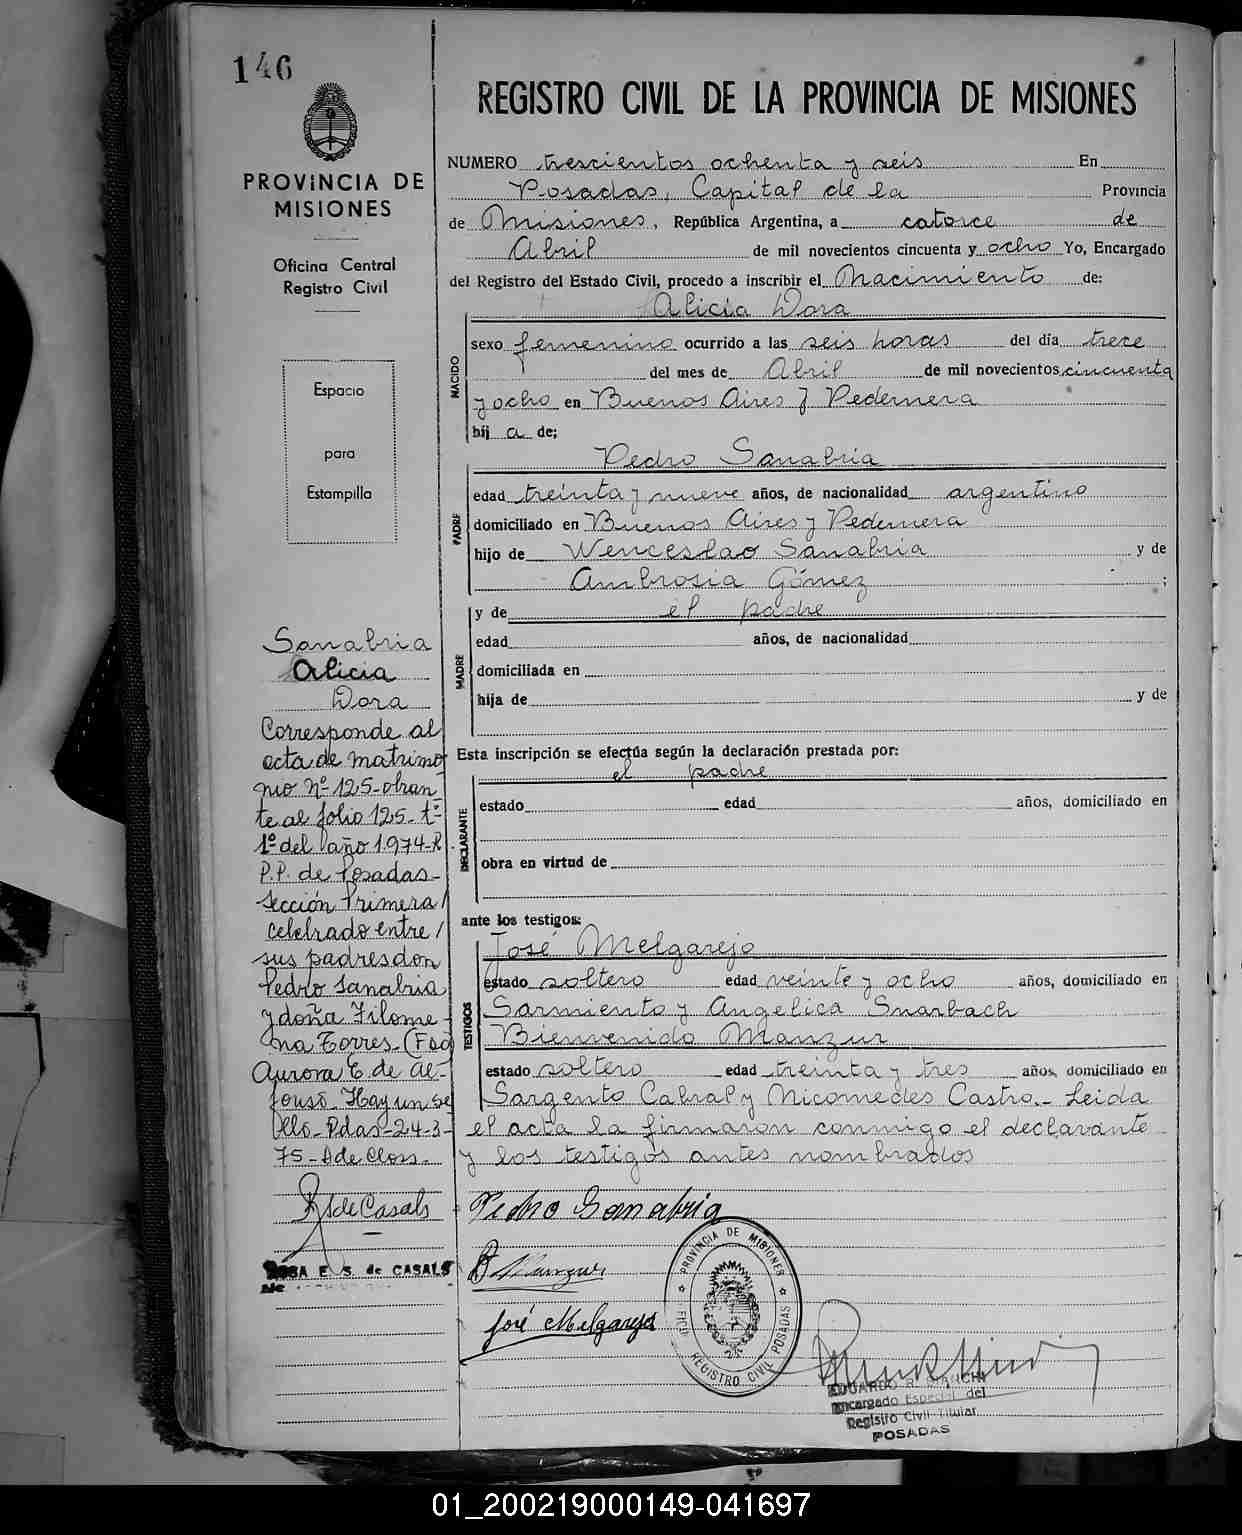 146
PROVINCIA DE
MISIONES
Oficina Central
Registro Civil
Espacio
para
Estampilla
Sanabria
Alicia
Dora
Corresponde al
acta de matrimo
nio Nº 125-obran
te al folio 125-tº
1º del año 1974-R
P.P. de Posadas-
Sección Primera/
celebrado entre/
sus padres don
Pedro Sanabria
y doña Filome-
na Torres-(Fdo
Aurora E. de Al-
fonso. Hay un se
llo-Pdas-24-3-
75-
R S de Casals
ROSA E. S. de CASALS
REGISTRO CIVIL DE LA PROVINCIA DE MISIONES
NUMERO trescientos ochenta y seis En
Posadas, Capital de la Provincia
de Misiones, República Argentina, a catorce de
Abril de mil novecientos cincuenta y ocho Yo, Encargado
del Registro del Estado Civil, procedo a inscribir el Nacimiento de:
NACIDO
Alicia Dora
sexo femenino ocurrido a las seis horas del día trece
del mes de Abril de mil novecientos cincuenta
y ocho en Buenos Aires y Pedernera
hij a de;
PADRE
Pedro Sanabria
edad treinta y nueve años, de nacionalidad argentino
domiciliado en Buenos Aires y Pedernera
hijo de Wenceslao Sanabria y de
Ambrosia Gómez ;
MADRE
y de el padre
edad años, de nacionalidad
domiciliada en
hija de y de
Esta inscripción se efectúa según la declaración prestada por:
DECLARANTE
el padre
estado edad años, domiciliado en
obra en virtud de
ante los testigos:
TESTIGOS
José Melgarejo
estado soltero edad veinte y ocho años, domiciliado en
Sarmiento y Angelica Snarbach
Bienvenido Manzur
estado soltero edad treinta y tres años, domiciliado en
Sargento Cabral y Nicomedes Castro.- Leida
el acta la firmaron conmigo el declarante
y los testigos antes nombrados
Pedro Sanabria
B Manzur
José Melgarejo
PROVINCIA DE MISIONES
REGISTRO CIVIL POSADAS
EDUARDO R. BIANCHI
Encargado Especial del
Registro Civil Titular
POSADAS
01_200219000149-041697